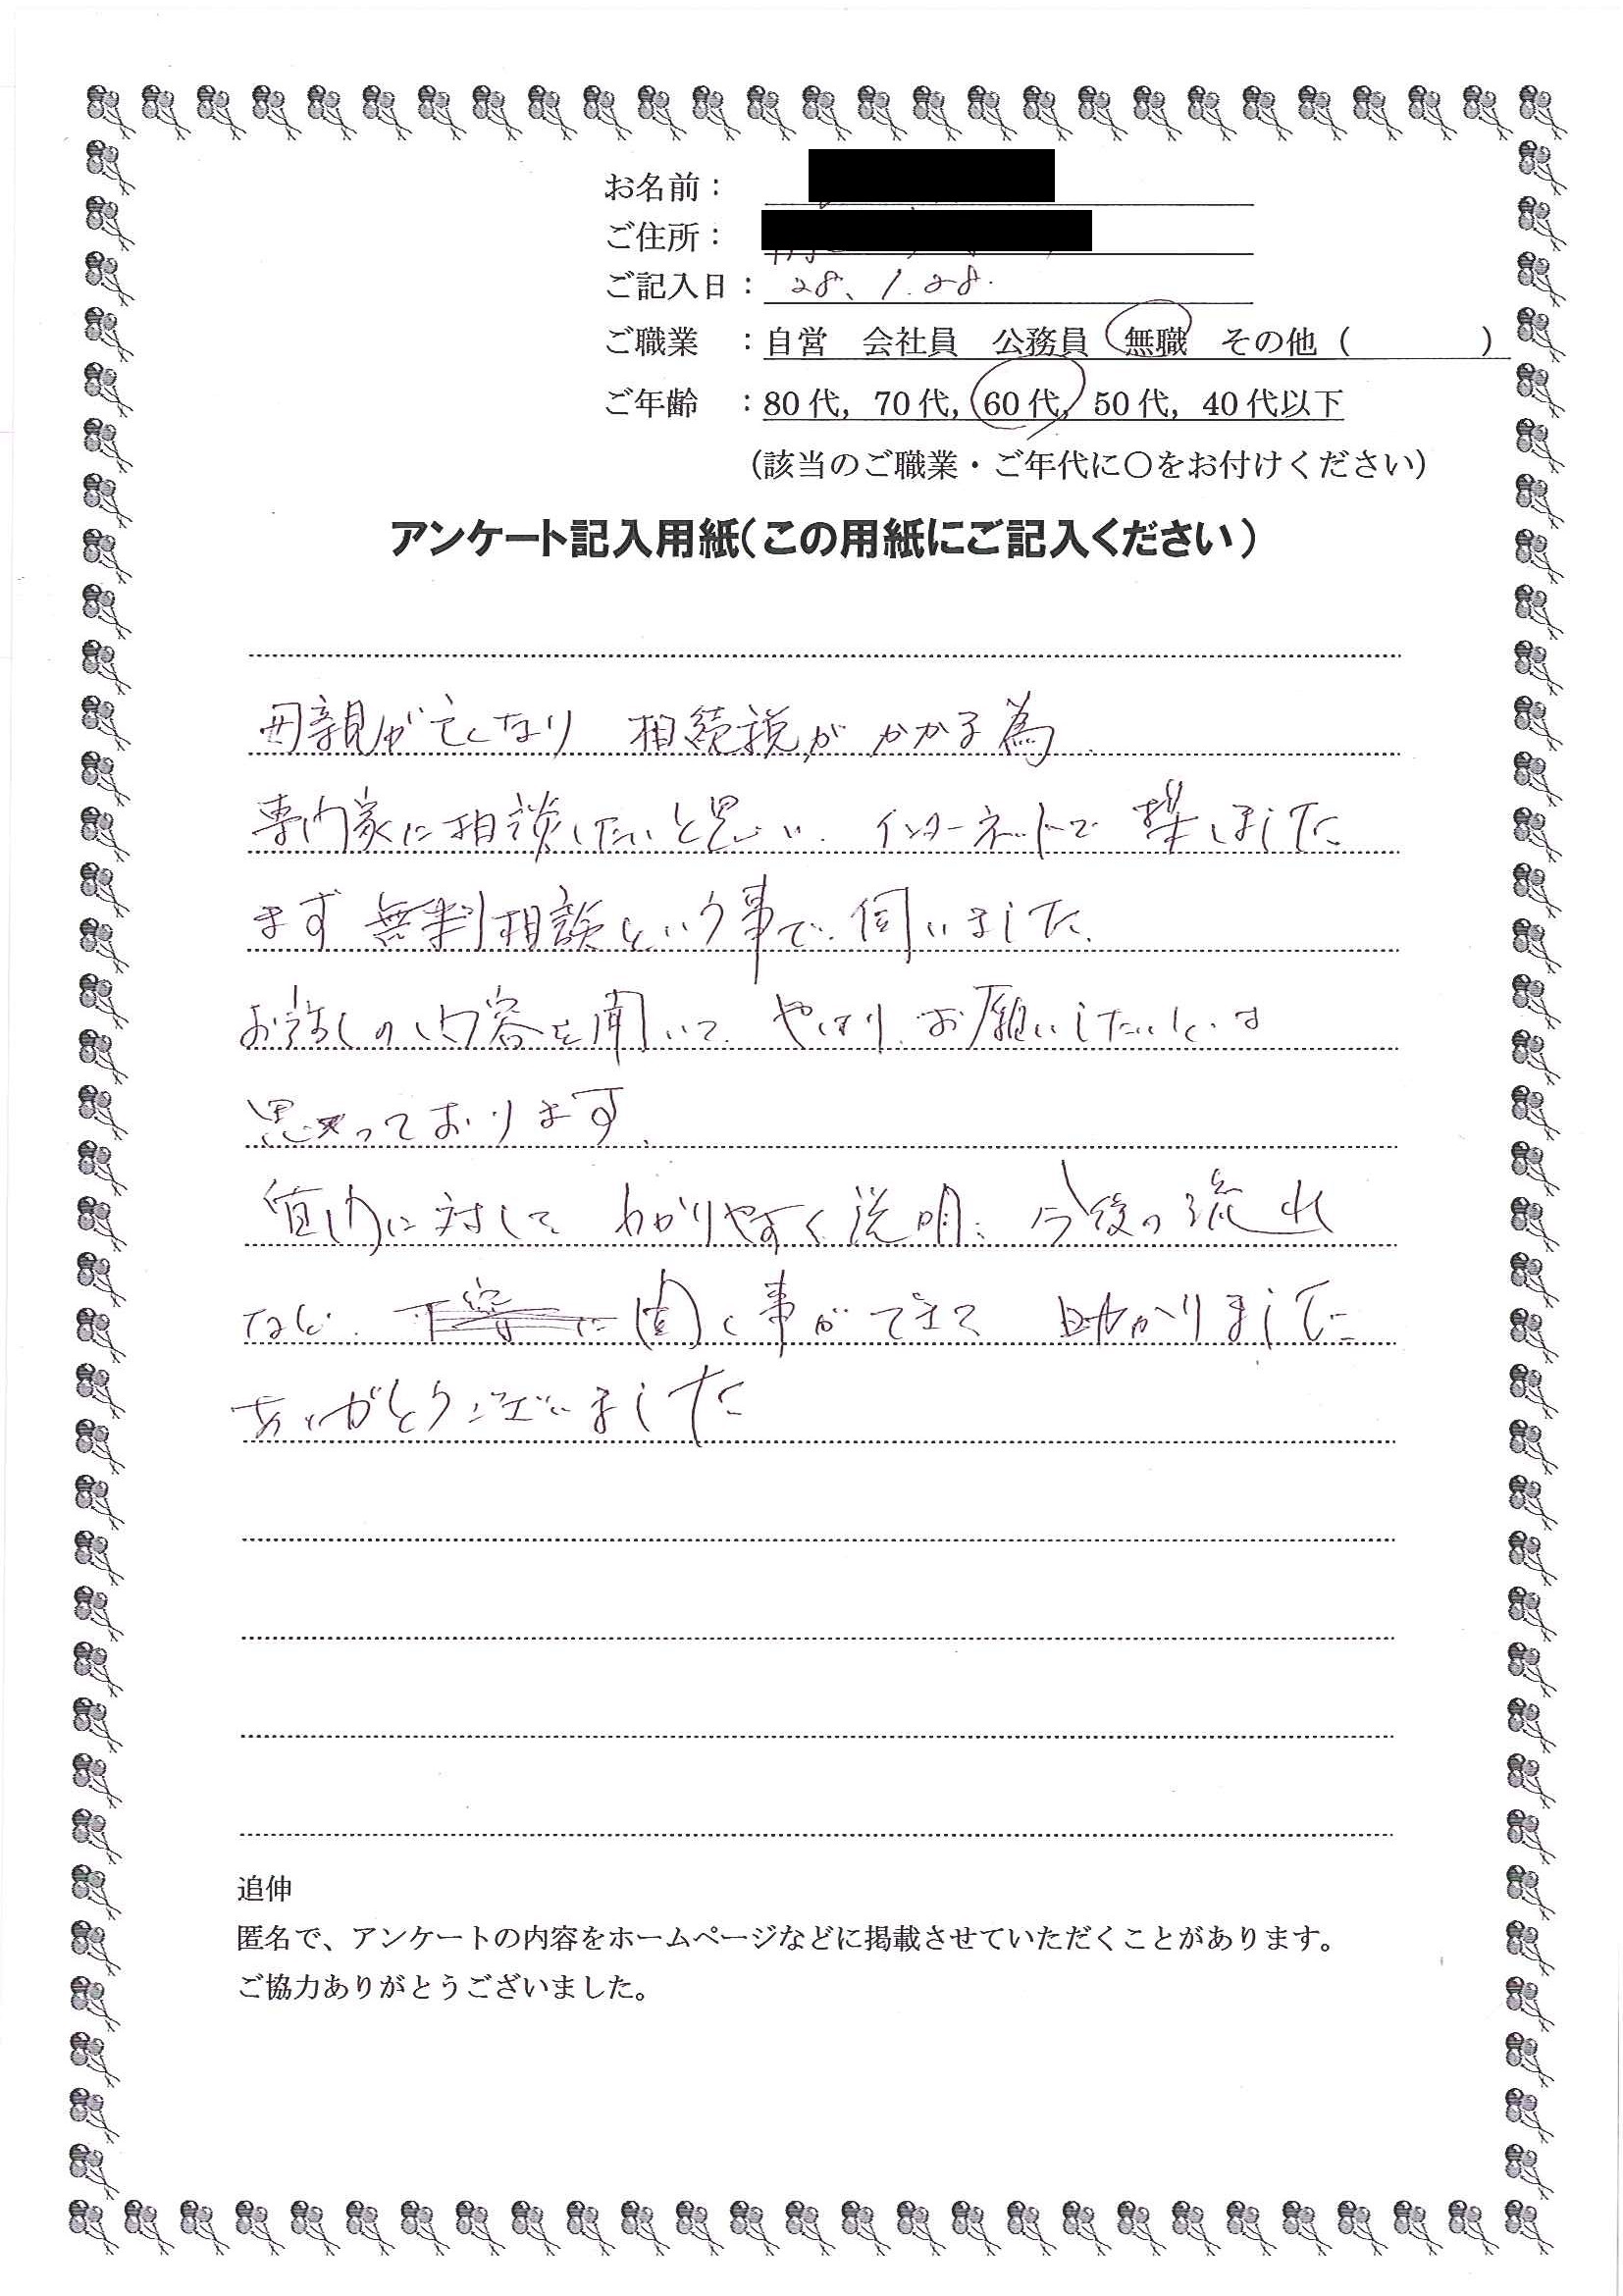 お名前：
ご住所：
ご記入日： 28. 1. 28.
ご職業 ：自営 会社員 公務員 無職 その他（ ）
ご年齢 ：80代，70代，60代，50代，40代以下
（該当のご職業・ご年代に〇をお付けください）
アンケート記入用紙（この用紙にご記入ください）
母親が亡くなり 相続税が かかる為
専門家に相談したいと思い、インターネットで 探しました
まず 無料相談という事で、伺いました.
お話しの内容を聞いて、やはり、お願いしたいと、は
思っております.
質問に対して わかりやすく説明、今後の流れ
など. 聞く事ができて 助かりました
ありがとうございました
追伸
匿名で、アンケートの内容をホームページなどに掲載させていただくことがあります。
ご協力ありがとうございました。